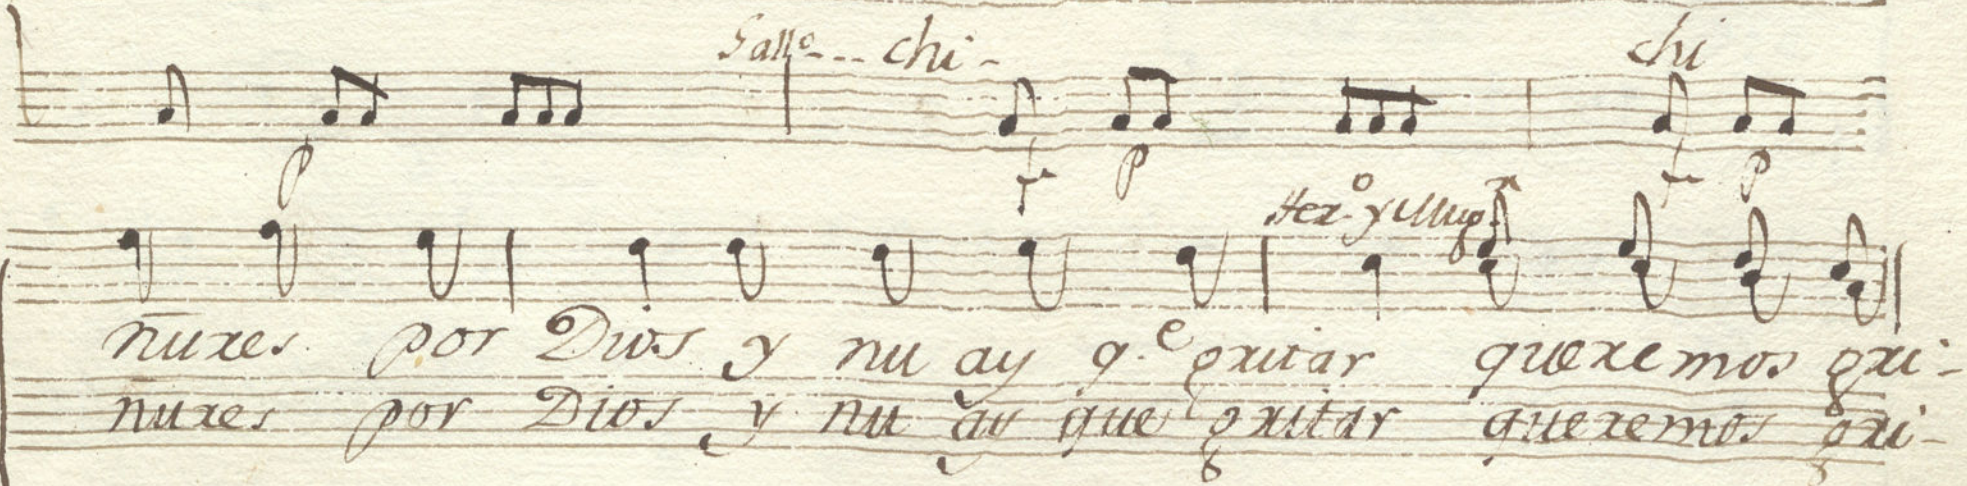 Sallo - - chi - chi
p f p f p
Hero y Mugr
nures por Dios y nu ay qe gritar queremos gri-
nures por Dios y nu ay que gritar queremos gri-